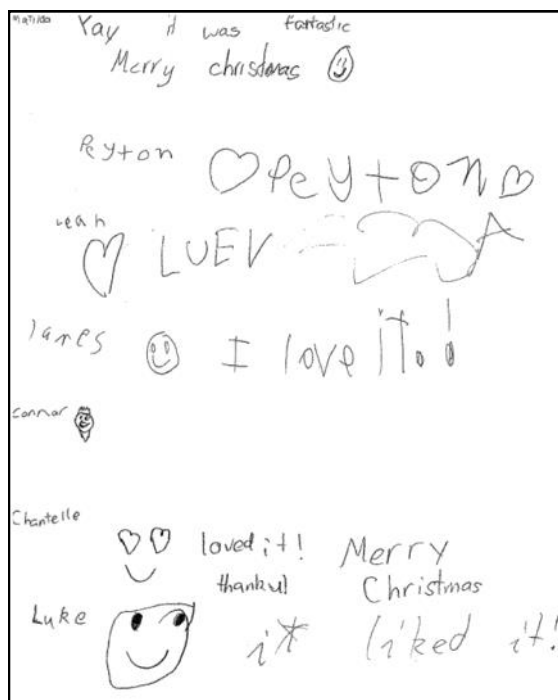 Matilda Yay it was fantastic
Merry christmas
Peyton Peyton
Leah LUEV A
James I love it.!
Connor
Chantelle loved it! Merry
thanku! Christmas
Luke it liked it!